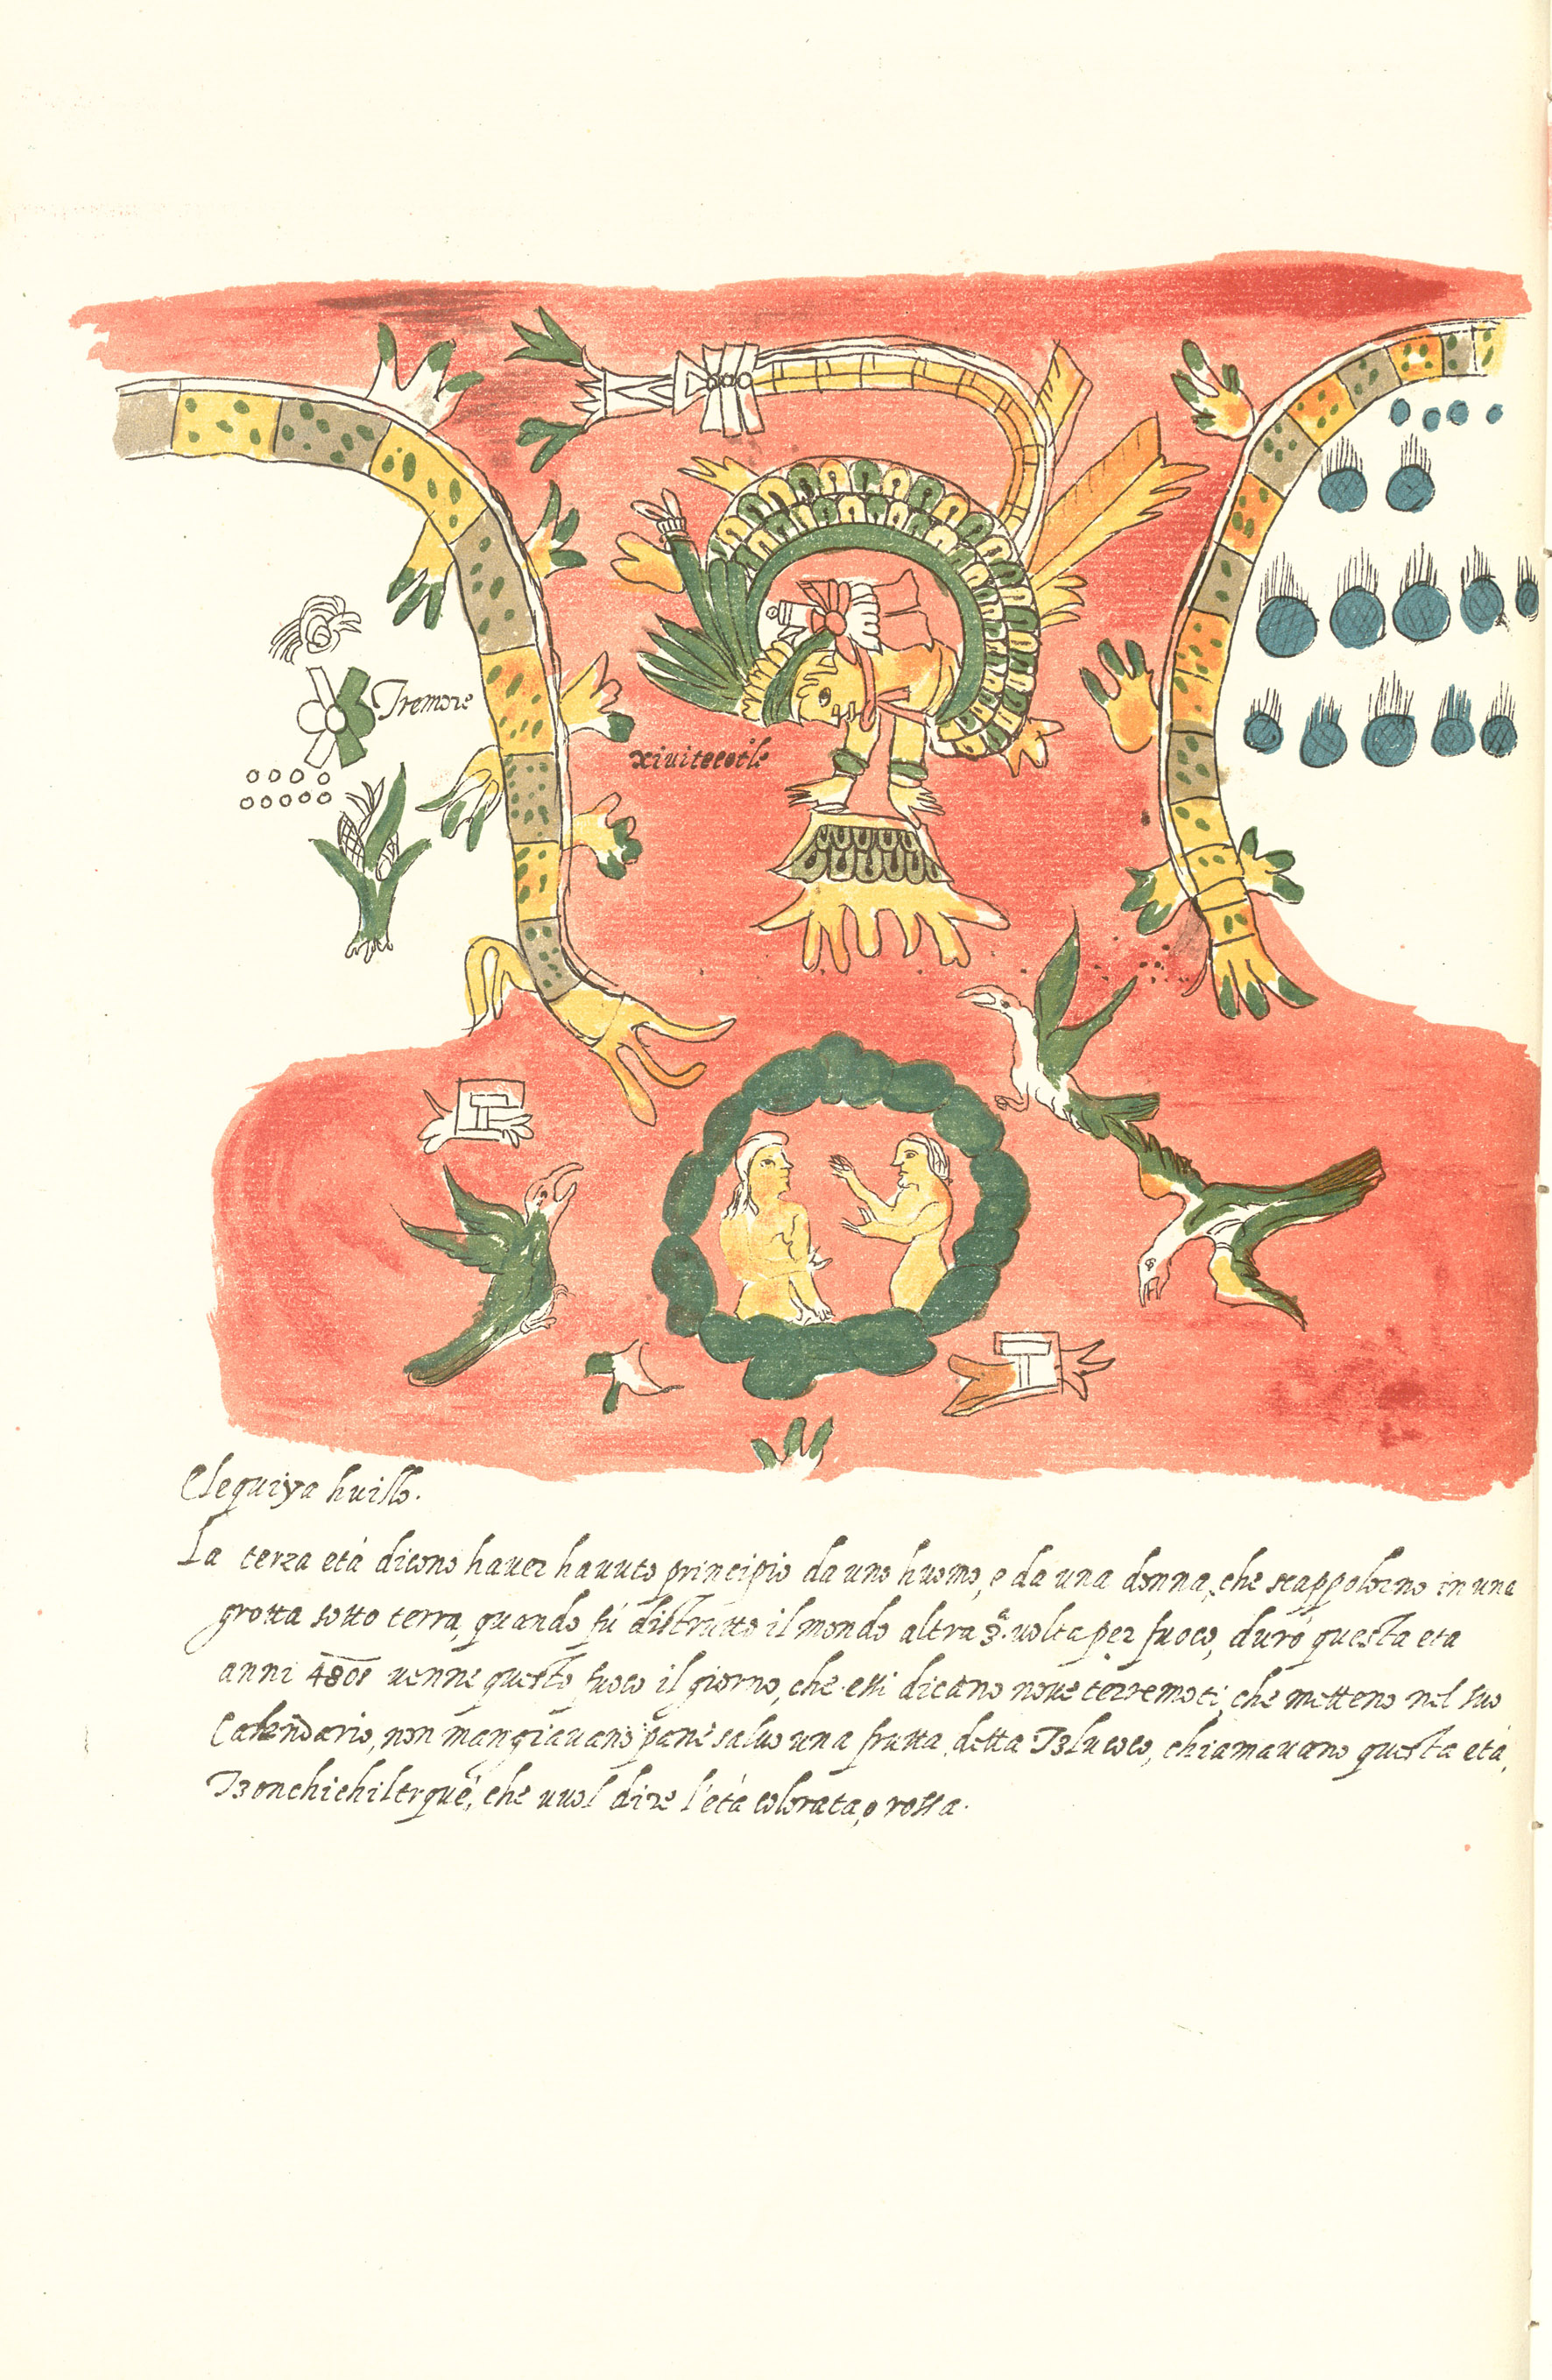 Tremore
xiuitecotle
Clequiya huillo.
La terza età dicono haver havuto principio da uno huomo, e da una donna, che scappolorno in una
grotta sotto terra, quando fú distrutto il mondo altra 3.ª volta per fuoco, duró questa eta
anni 4801 venne questo fuoco il giorno, che essi dicano nove terremoti, che metteno nel suo
Calendario, non mangiavano pane salvo una frutta detta Tzlucoco, chiamavano questa etá,
Tzonchichiltequé, che vuol dire l'etá colorata, o rossa.